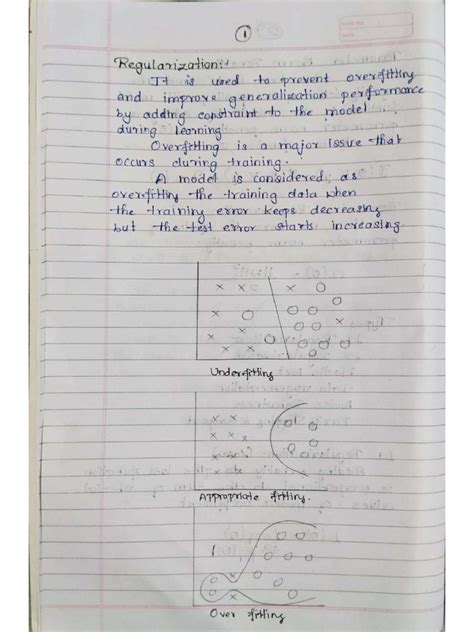 1
Regularization:
It is used to prevent overfitting
and improve generalization performance
by adding constraint to the model
during learning
Overfitting is a major issue that
occurs during training.
A model is considered as
overfitting the training data when
the training error keeps decreasing
but the test error starts increasing.
Underfitting
Appropriate fitting.
Over fitting